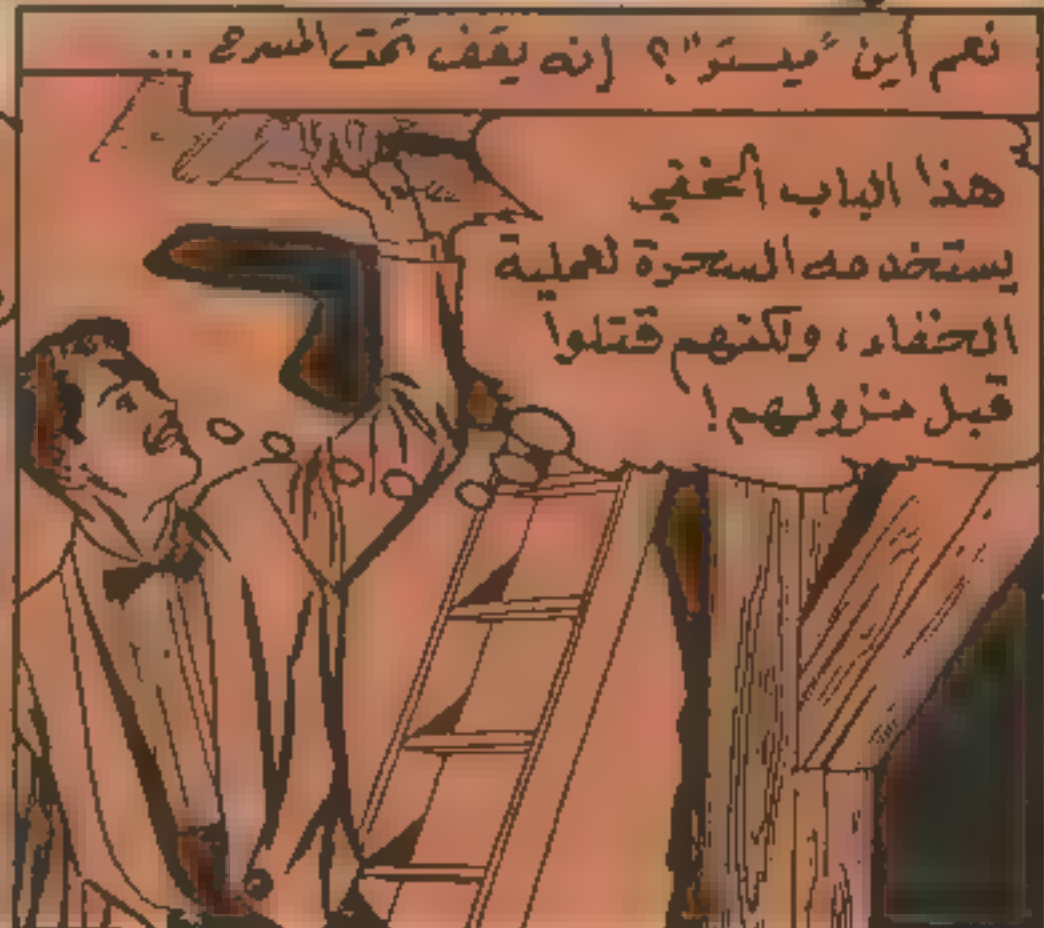 نعم أين "ميستو"؟ إنه يقف تحت المسرح ...
هذا الباب الخفي
يستخدمه السحرة لعملية
الخفاء، ولكنهم قتلوا
قبل منزولهم!